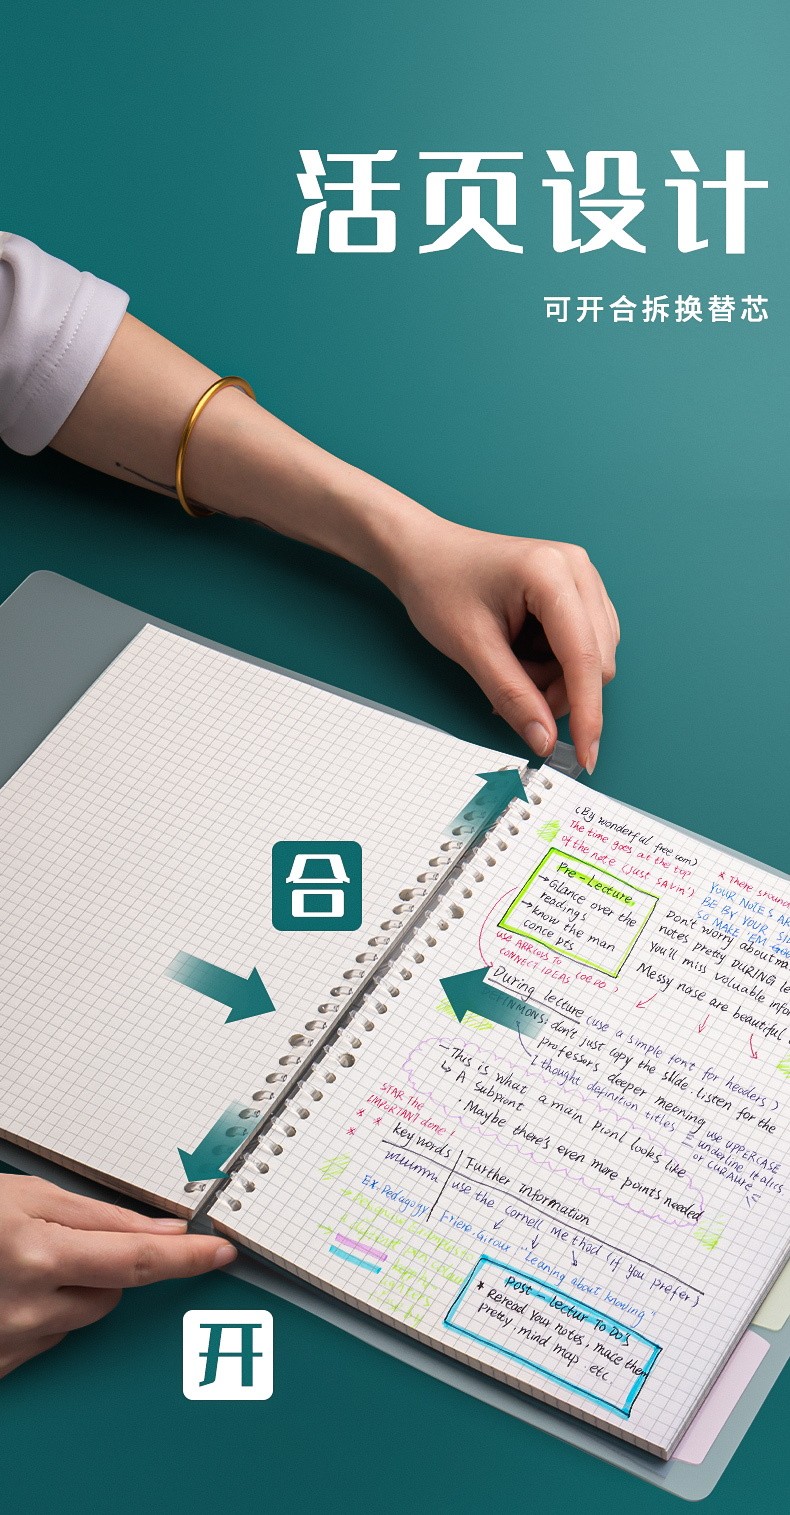 活页设计
可开合拆换替芯
合
开
(By wonderful free com)
The time goes at the top
of the note (just SAVin')
Pre-Lecture
→Glance over the
readings
→know the man
conce pts
use ARROWS TO
CONNECT IDEAS
YOUR NOTES
BE BY YOUR
SO MAKE 'EM
Don't worry about
notes pretty DURING
You'll miss valuable
Messy nase are beautiful
During lecture (use a simple font for headers)
don't just copy the slide. listen for the
professors deeper meening
thought definition titles
use UPPERCASE
underline, italics
—This is what a main pionl looks like
↳ A Subpiont
. Maybe there's even more points needed
STAR The
IMPORTANT done
* *
*
key words
Further information
use the Cornell Method (if you prefer)
Ex. Pedagogy
Friere. Giroux "Leaning about knowing"
Post-lectur To Do's
* Reread Your notes, mace them
pretty. mind map. etc.